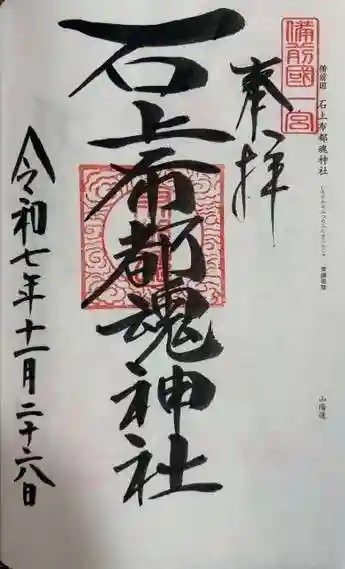 備前國
備前国 石上布都魂神社
山陽道
奉拝
石上布都魂神社
令和七年十一月二十六日